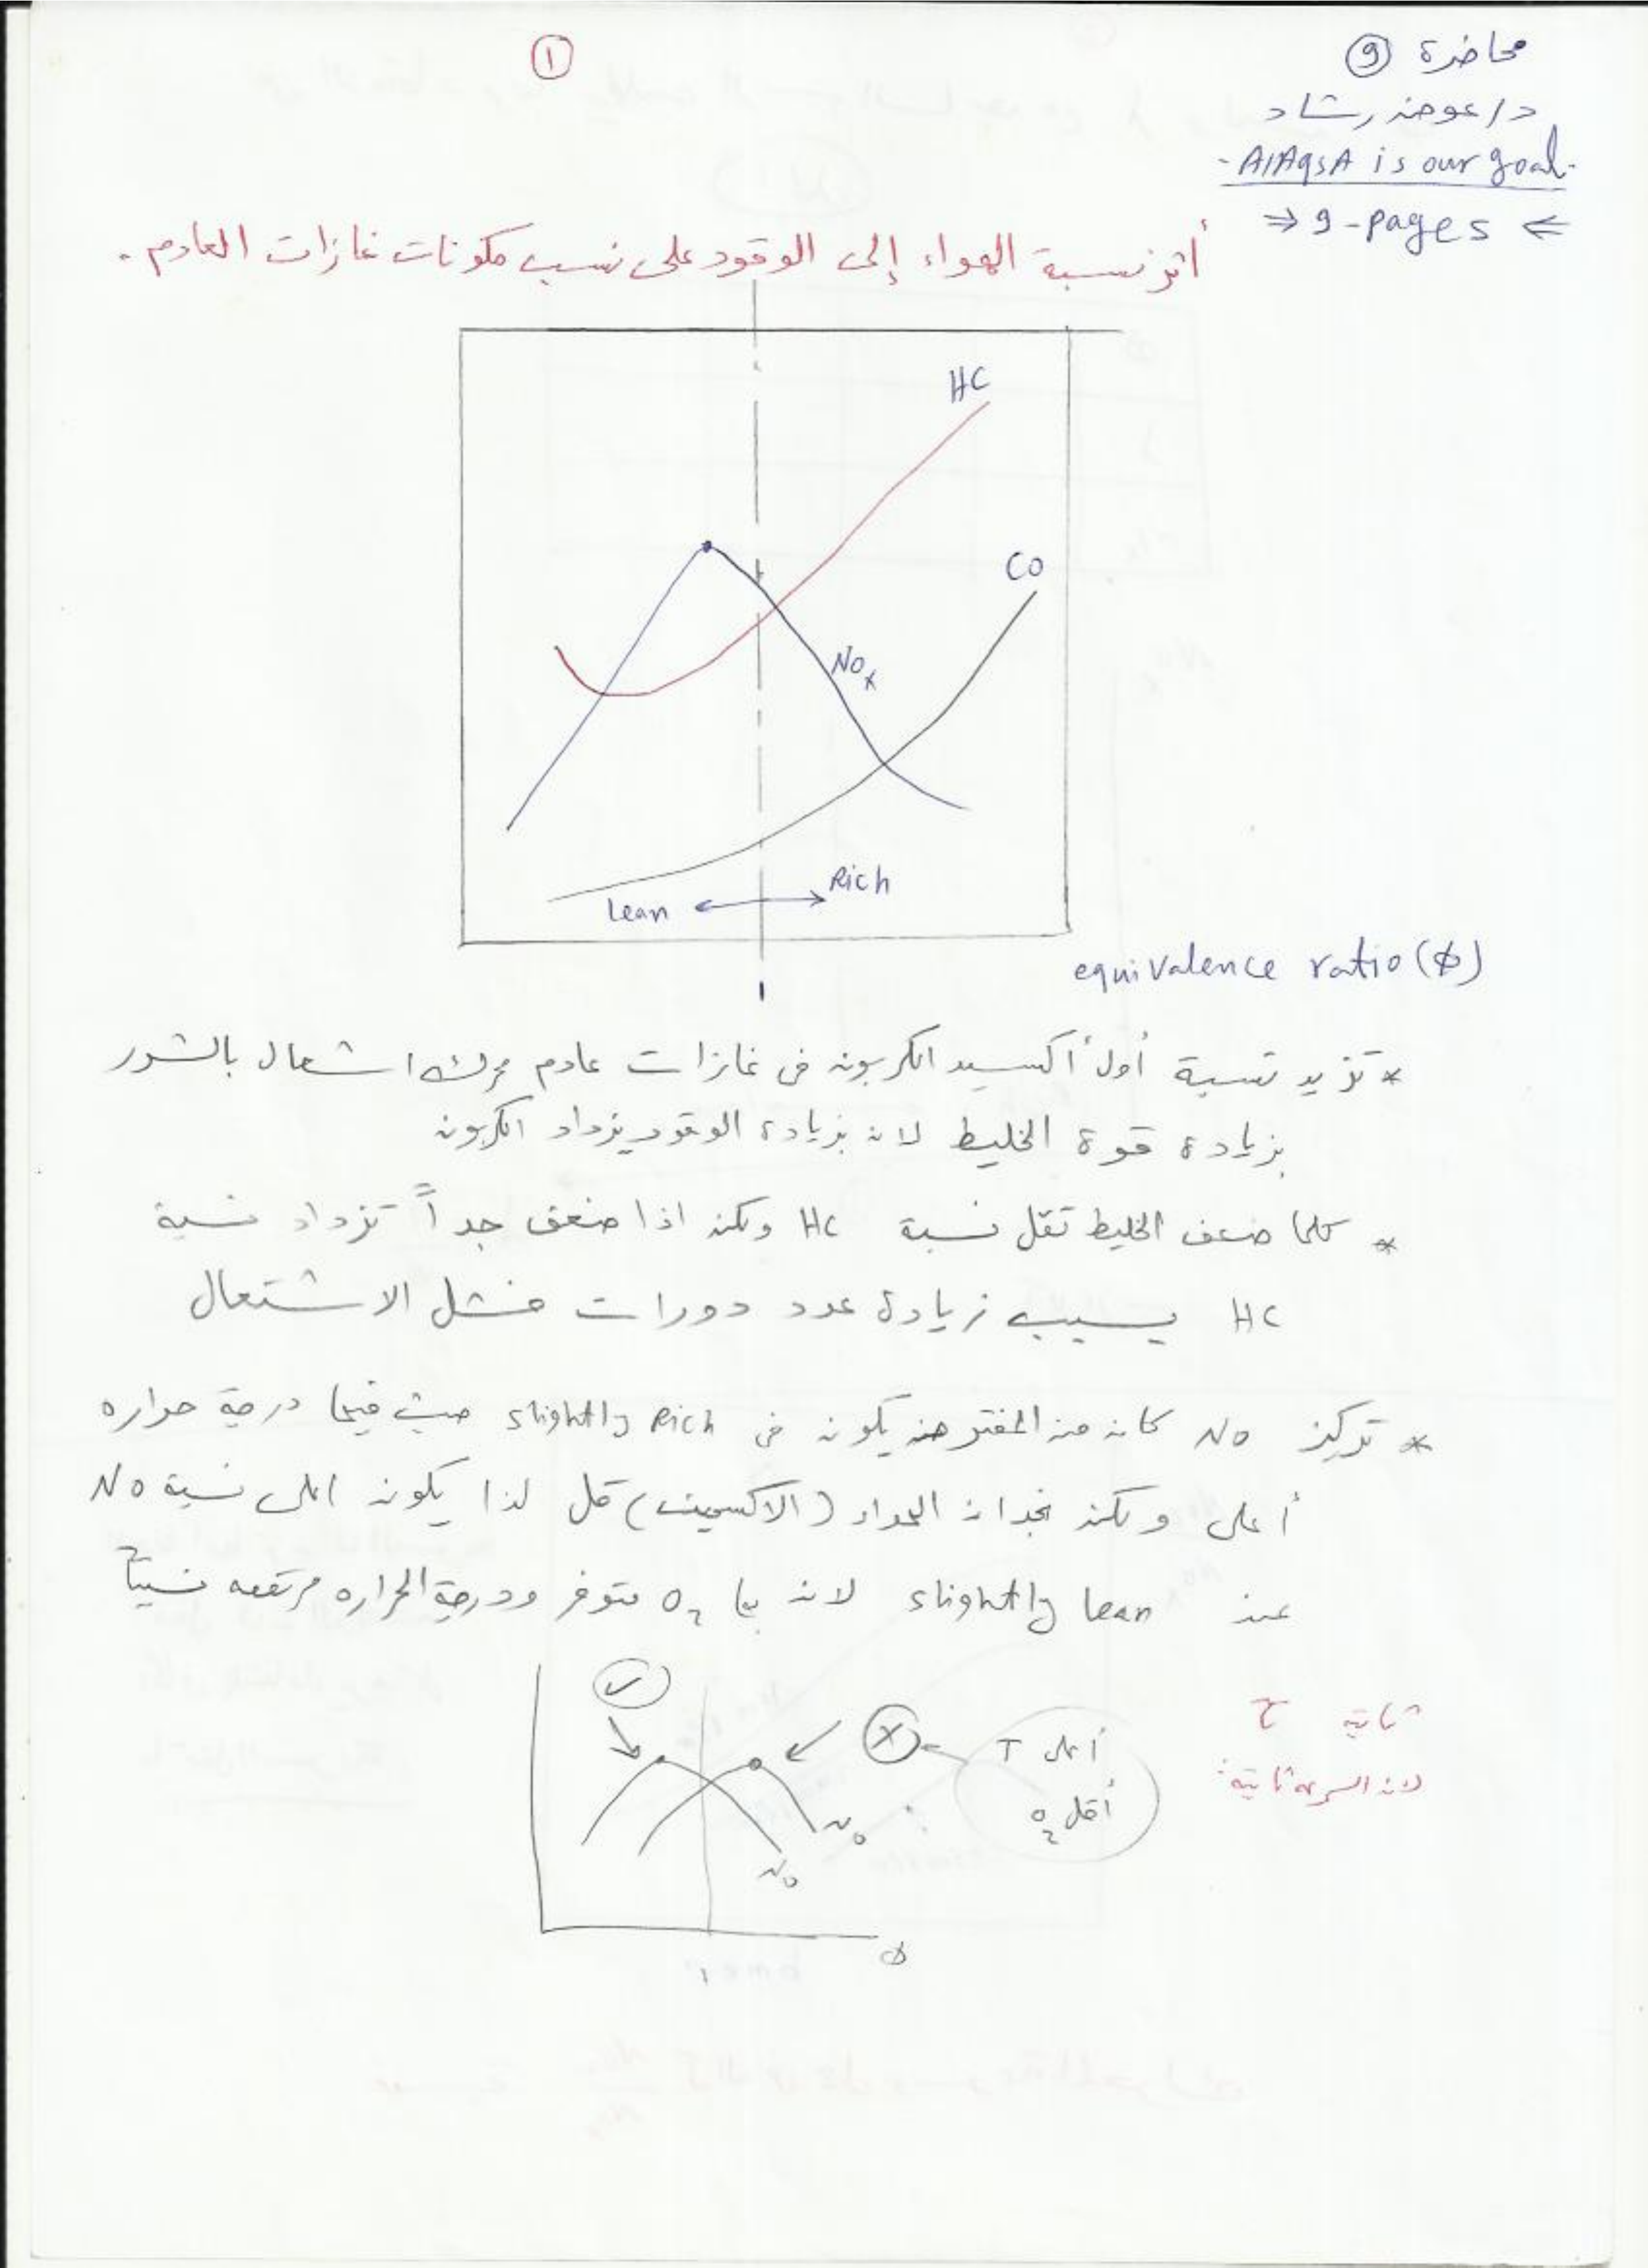 محاضرة ⑨
①
د/عوض رشاد
- AlAqsA is our goal -
⇒ 9-pages ⇐
أثر نسبة الهواء إلى الوقود على نسب مكونات غازات العادم .
HC
CO
NOx
Rich
lean
equivalence ratio (ϕ)
1
* تزيد نسبة أول أكسيد الكربون فى غازات عادم محرك اشعال بالشرر
بزيادة قوة الخليط لان بزيادة الوقود يزداد الكربون
* كلما ضعف الخليط تقل نسبة HC ولكن اذا ضعف جداً تزداد نسبة
HC بسبب زيادة عدد دورات فشل الاشتعال
* تركيز NO كان من المفترض يكون فى slightly Rich حيث فيها درجة حراره
أعلى ولكن نجد ان الهواء (الاكسجين) قل لذا يكون اعلى نسبة NO
عند slightly lean لان بها O2 متوفر ودرجة الحراره مرتفعه نسبياً
✓
X
أعلى T
أقل O2
ثابته
لان السرعه ثابته
NO
NO
ϕ
1